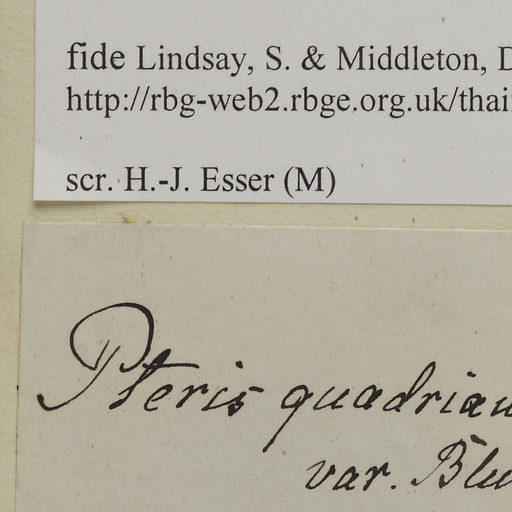 fide Lindsay, S. & Middleton, D
http://rbg-web2.rbge.org.uk/thai
scr. H.-J. Esser (M)
Pteris quadriau
var. Blu